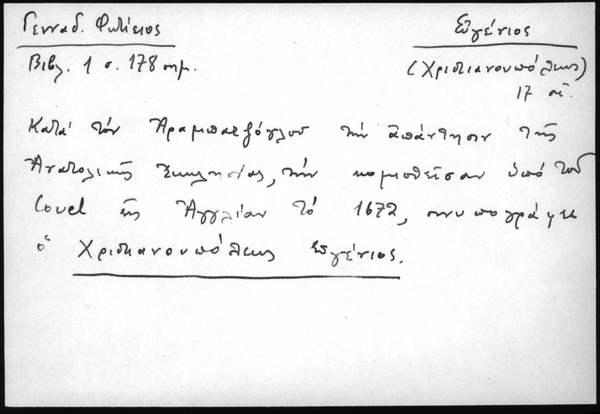 Γενναδ. Φωτίειος
Βιβλ. 1 σ. 178 σημ.
Εὐγένιος
(Χριστιανουπόλεως)
17 αἰ.
Κατά τόν Ἀραμπατζόγλου τήν ἀπάντησιν τῆς
Ἀνατολικῆς Ἐκκλησίας, τήν κομισθεῖσαν ὑπό τοῦ
Covel εἰς Ἀγγλίαν τό 1672, συνυπογράφει
ὁ Χριστιανουπόλεως Εὐγένιος.